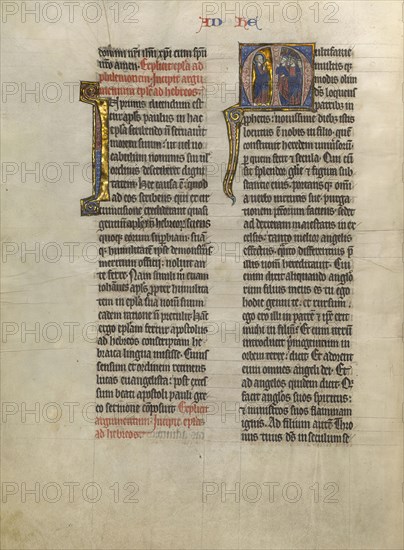 AD HE
domini nostri ihu xpi cum spiritu
vro amen. Explicit epla ad
philemonem. Incipit argu
mentum eple ad hebreos.
In primis dicendum est
cur apls paulus in hac
epla scribendo non servaverit
morem suum: ut vel vo
cabulum nominis sui vel
ordinis describeret digni
tatem. Hec causa est quod
ad eos scribens qui ex cir
cumcisione crediderant quasi
gentium apls et non hebreorum
quoque eorum superbiam suam
que humilitatem ipse demonstrans
meritum officii voluit an
te ferre. Nam simili modo etiam
iohannes apls propter humilita
tem in epla sua nomen suum
eadem ratione non pretulit. Hanc
ergo eplam fertur apostolus
ad hebreos conscriptam he
braica lingua misisse. Cuius
sensum et ordinem retinens
lucas evangelista post exces
sum beati apostoli pauli gre
co sermone composuit. Explicit
argumentum. Incipit epla
ad hebreos.
Multifarie
multisque
modis olim
deus loquens
patribus in
prophetis: novissime diebus istis
locutus est nobis in filio quem
constituit heredem universorum
per quem fecit et secula. Qui cum
sit splendor glorie et figura sub
stantie eius, portansque omni
a verbo virtutis sue purga
tionem peccatorum faciens, sedet
ad dexteram maiestatis in ex
celsis: tanto melior angelis
effectus, quanto differentius pre
illis nomen hereditavit. Cui
enim dixit aliquando anglorum
filius meus es tu ego
hodie genui te. et rursum
ego ero illi in patrem et ipse erit
michi in filium. Et cum iterum
introducit primogenitum in
orbem terre: dicit. Et adorent
eum omnes angeli dei. Et
ad angelos quidem dicit. Qui
facit anglos suos spiritus:
et ministros suos flammam
ignis. Ad filium autem. Thro
nus tuus deus in seculum se